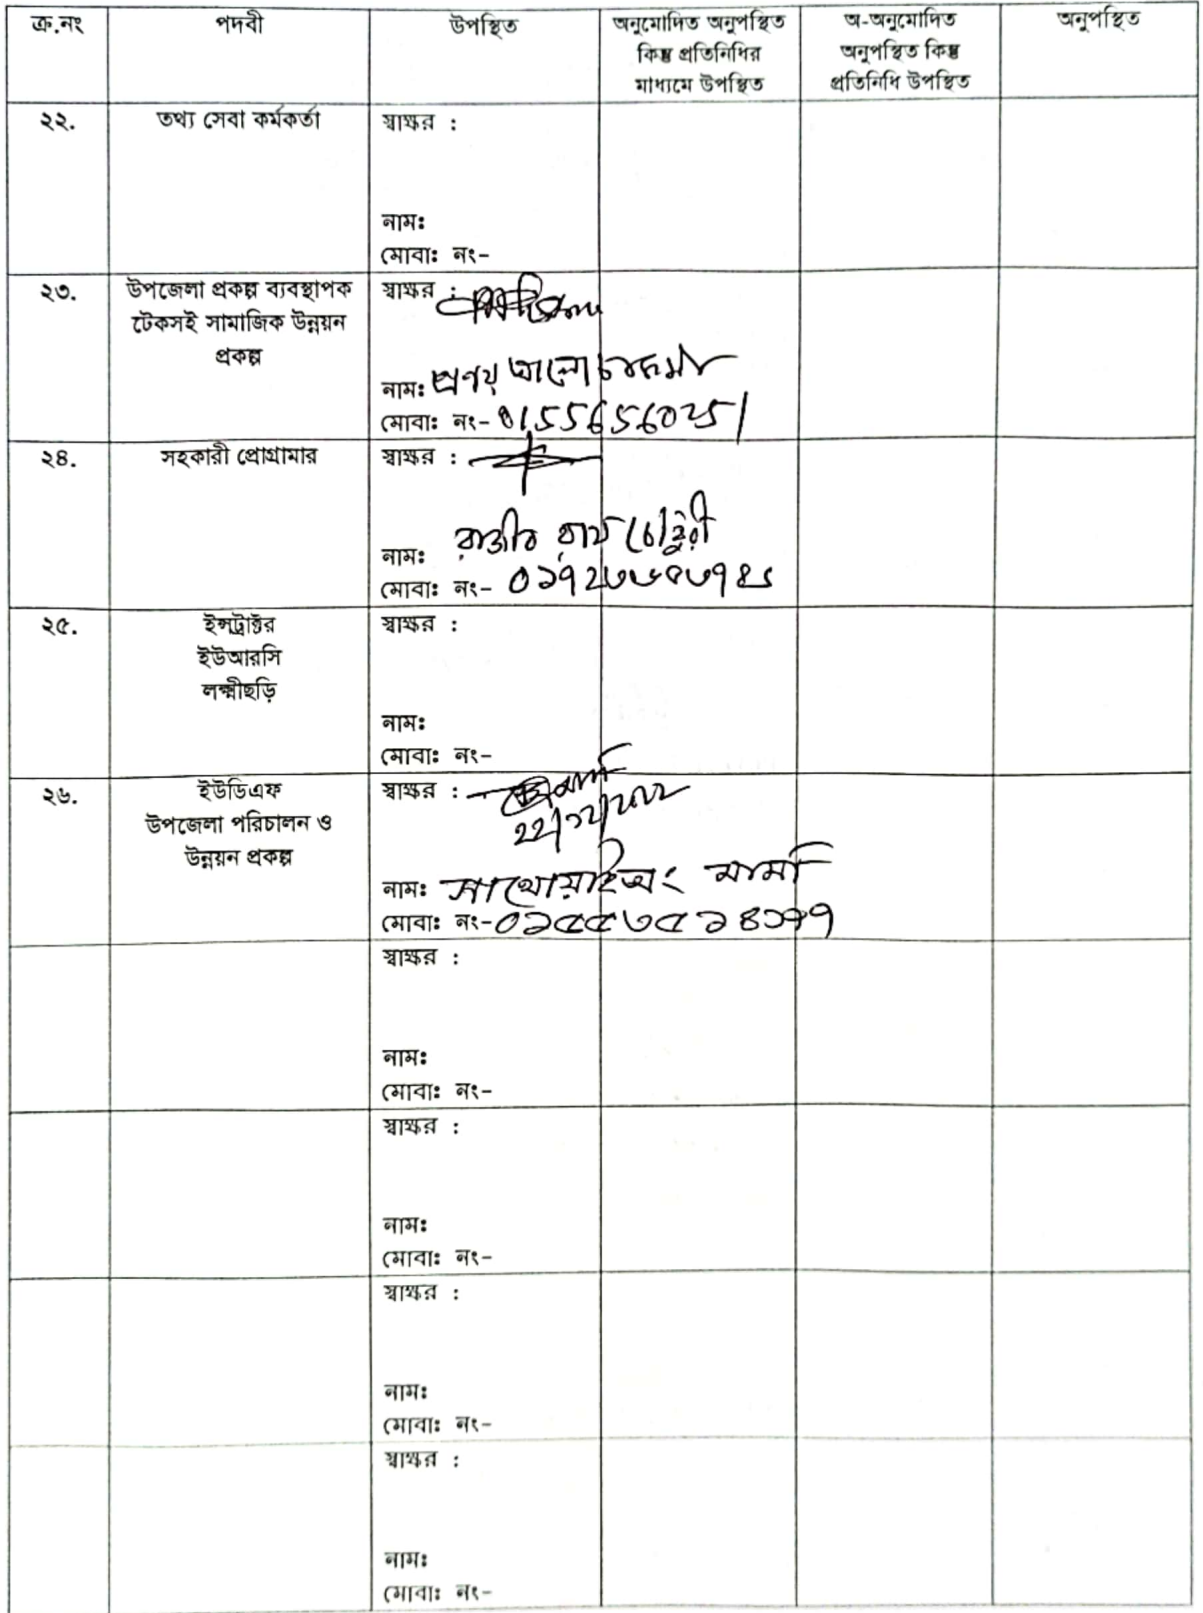 ক্র.নং পদবী উপস্থিত অনুমোদিত অনুপস্থিত কিন্তু প্রতিনিধির মাধ্যমে উপস্থিত অ-অনুমোদিত অনুপস্থিত কিন্তু প্রতিনিধি উপস্থিত অনুপস্থিত
২২. তথ্য সেবা কর্মকর্তা স্বাক্ষর :
নাম:
মোবা: নং-
২৩. উপজেলা প্রকল্প ব্যবস্থাপক স্বাক্ষর :
টেকসই সামাজিক উন্নয়ন
প্রকল্প
নাম: প্রনয় আলো চাকমা
মোবা: নং- 01556560251
২৪. সহকারী প্রোগ্রামার স্বাক্ষর :
নাম: রাজীব রায় চৌধুরী
মোবা: নং-
২৫. ইন্সট্রাক্টর স্বাক্ষর :
ইউআরসি
লক্ষ্মীছড়ি
নাম:
মোবা: নং-
২৬. ইউডিএফ স্বাক্ষর :
উপজেলা পরিচালন ও
উন্নয়ন প্রকল্প
নাম: সাথোয়াইঅং মার্মা
মোবা: নং-
স্বাক্ষর :
নাম:
মোবা: নং-
স্বাক্ষর :
নাম:
মোবা: নং-
স্বাক্ষর :
নাম:
মোবা: নং-
স্বাক্ষর :
নাম:
মোবা: নং-